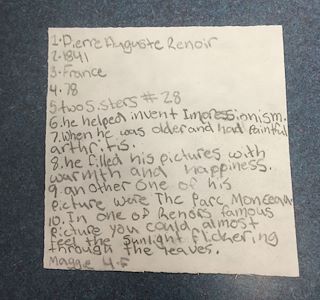 1. Pierre Auguste Renoir
2. 1841
3. France
4. 78
5. two sisters # 28
6. he helped invent Impressionism.
7. When he was older and had painful
arthritis.
8. he filled his pictures with
warmth and happiness.
9 another one of his
picture were The Parc Monceau
10. In one of Renors famous
picture you could almost
feel the sunlight flickering
through the leaves.
Maggie 4-